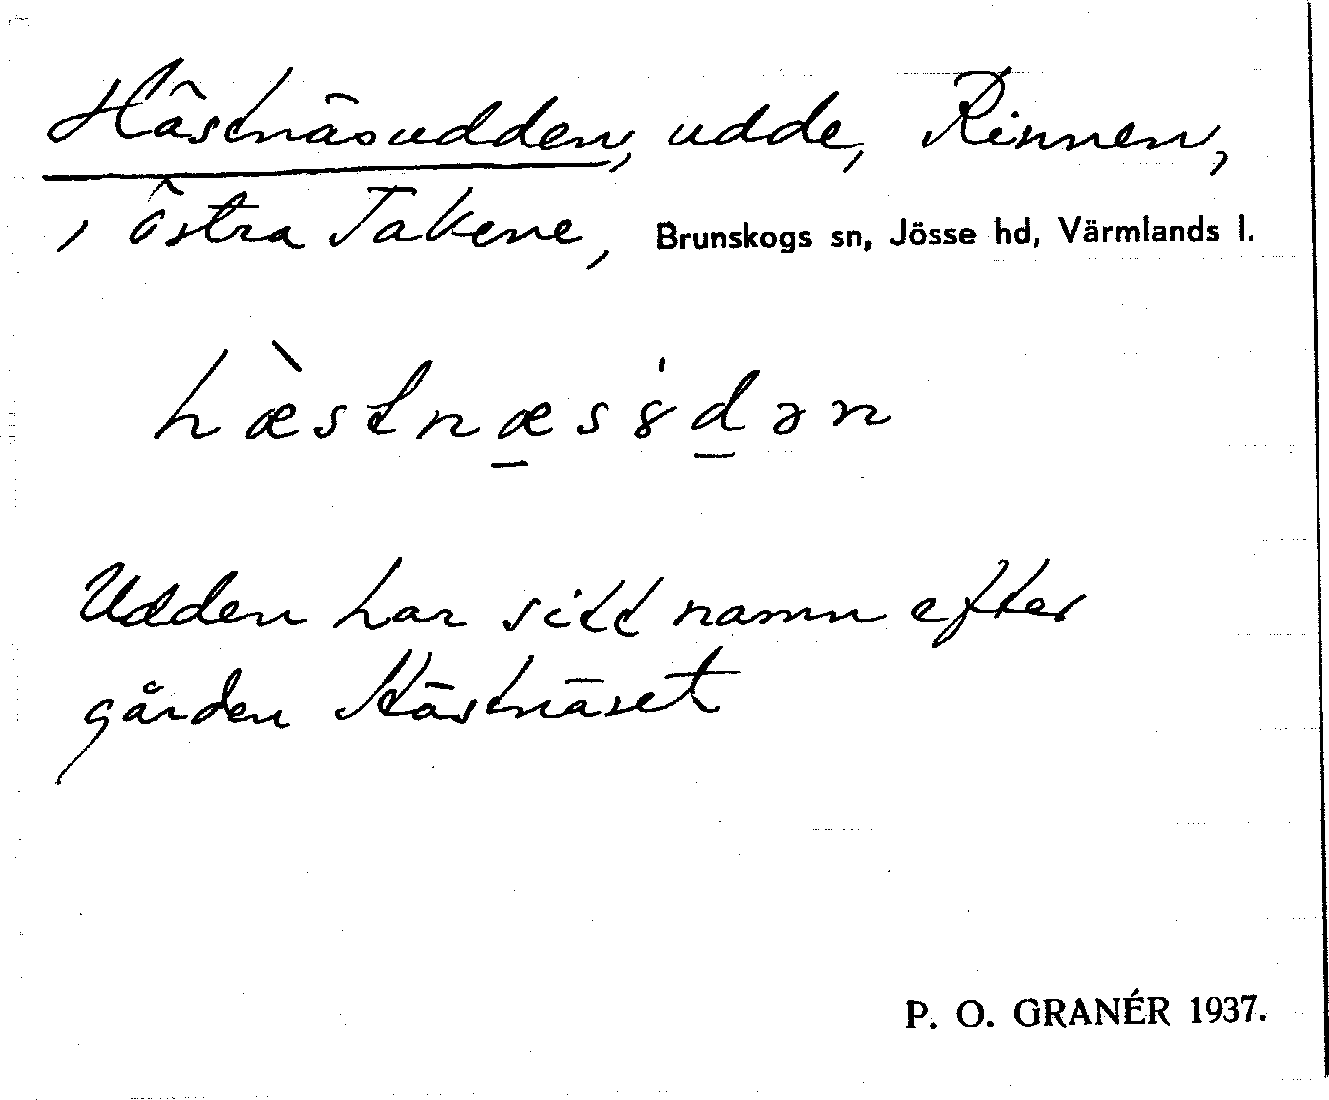 Hästnäsudden, udde, Rinnen,
, Östra Takene, Brunskogs sn, Jösse hd, Värmlands l.
hæ̀stnæ̲sꞌ8d̲ən
Udden har sitt namn efter
gården Hästnäset
P. O. GRANÉR 1937.